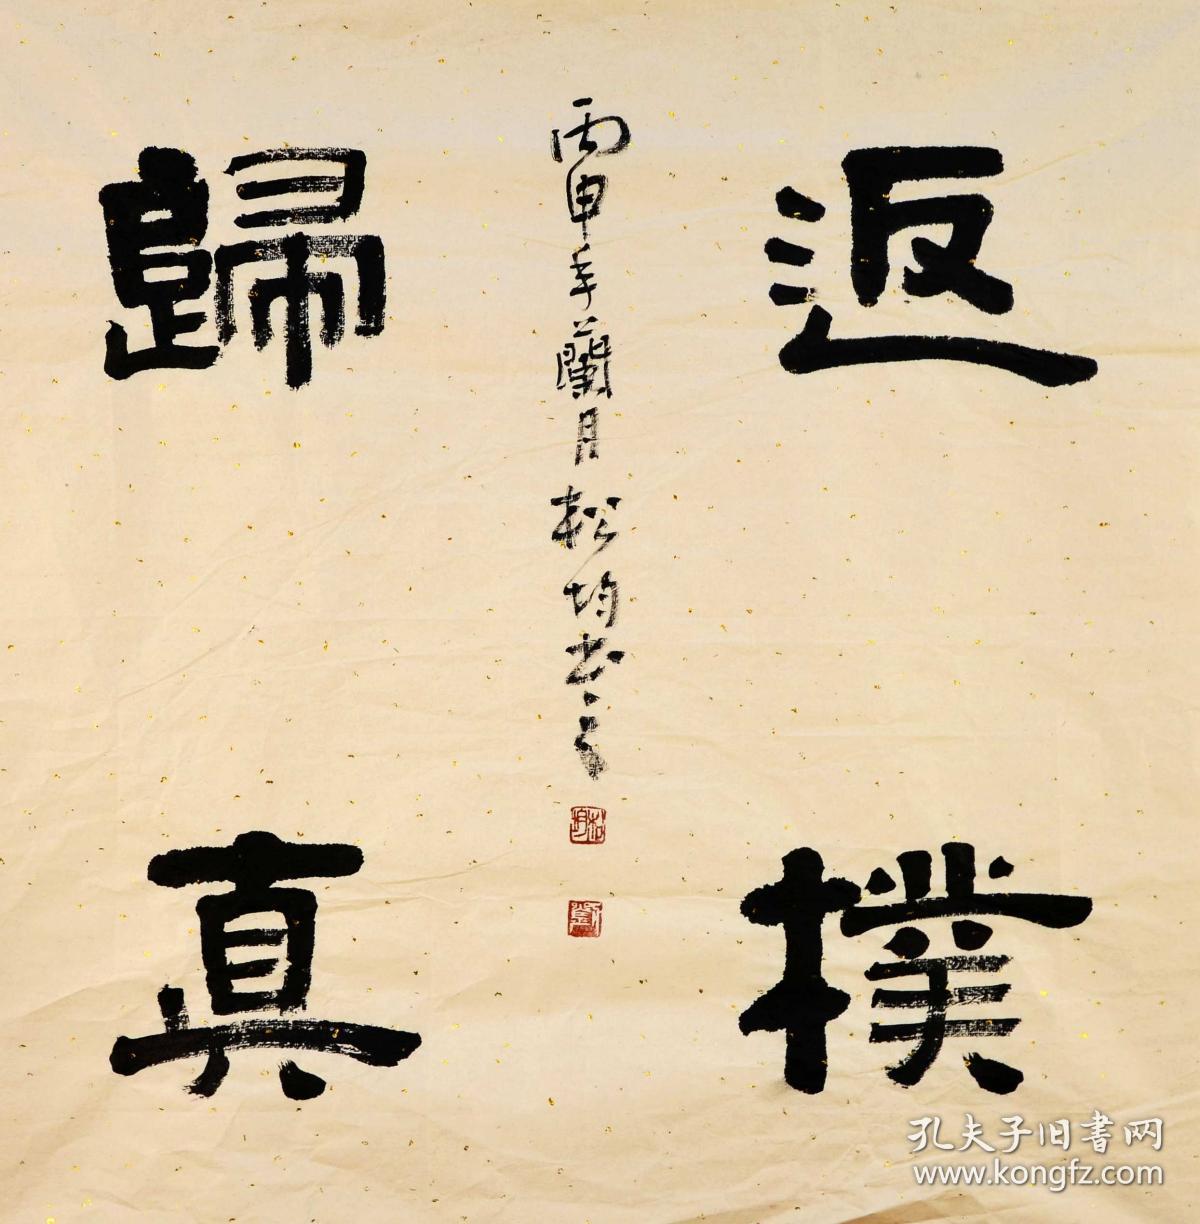 返撲
歸真
丙申年蘭月松均書之
松均
孔夫子旧書网
www.kongfz.com